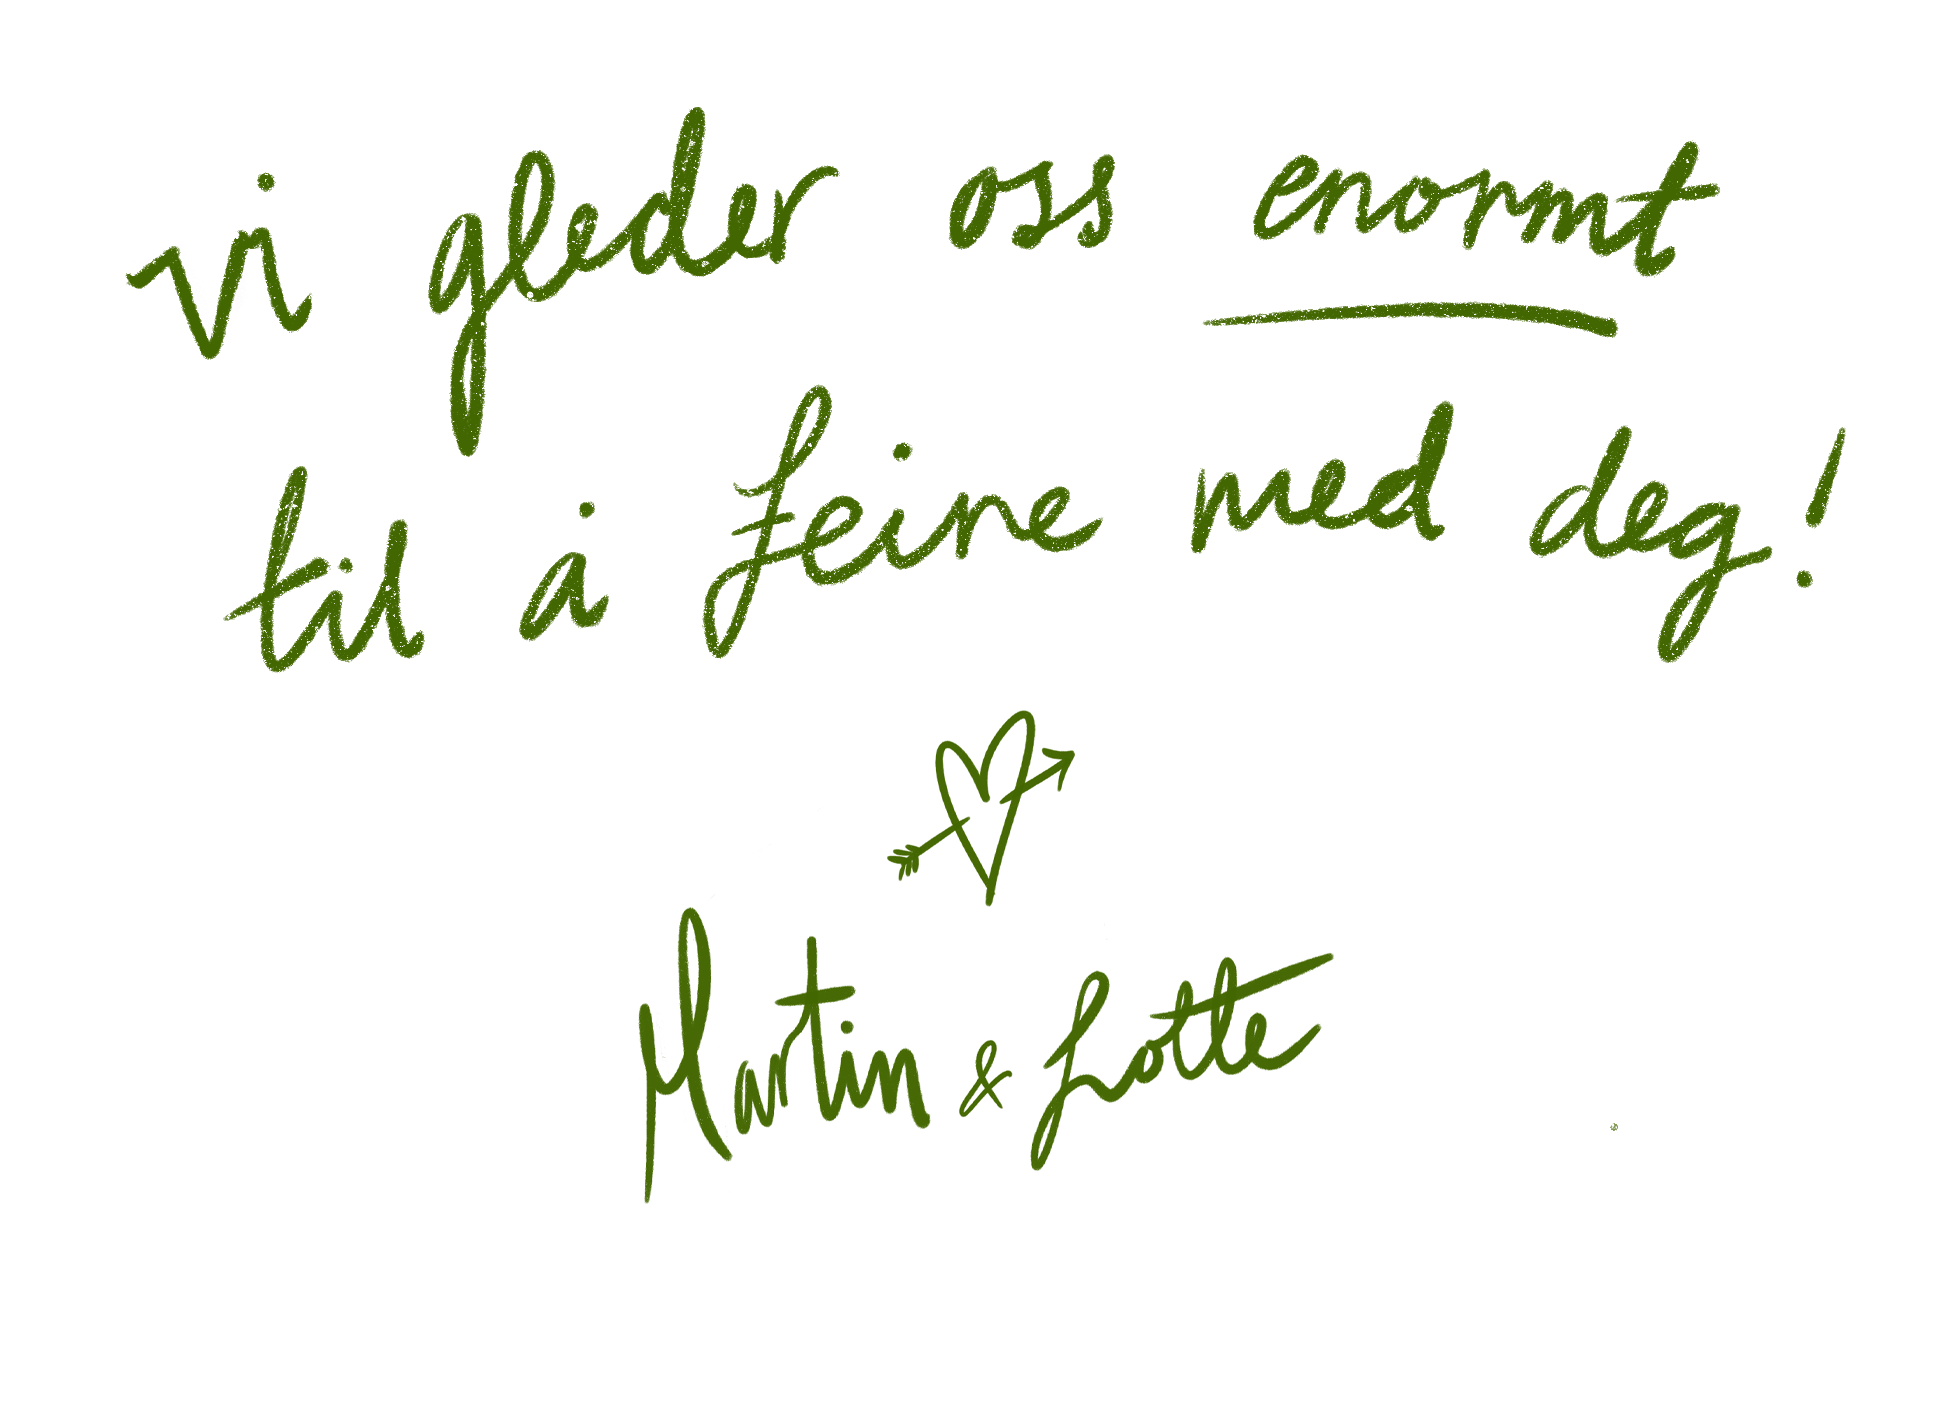 vi gleder oss enormt
til å feire med deg!
Martin & Lotte